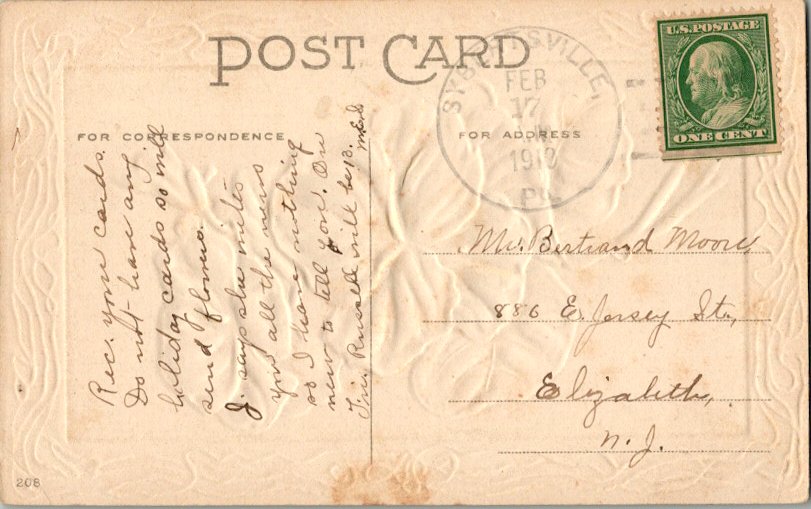 POST CARD
FOR CORRESPONDENCE
FOR ADDRESS
U.S. POSTAGE
ONE CENT
SYBERTSVILLE,
FEB
17
1912
PA.
Rec. your cards.
Do not have any
holiday cards so will
send flowers.
J. says she writes
you all the news
so I have nothing
new to tell you. On
Fri. Russell will be 13.
Mr. Bertrand Moore,
886 E. Jersey St.,
Elizabeth,
N. J.
208